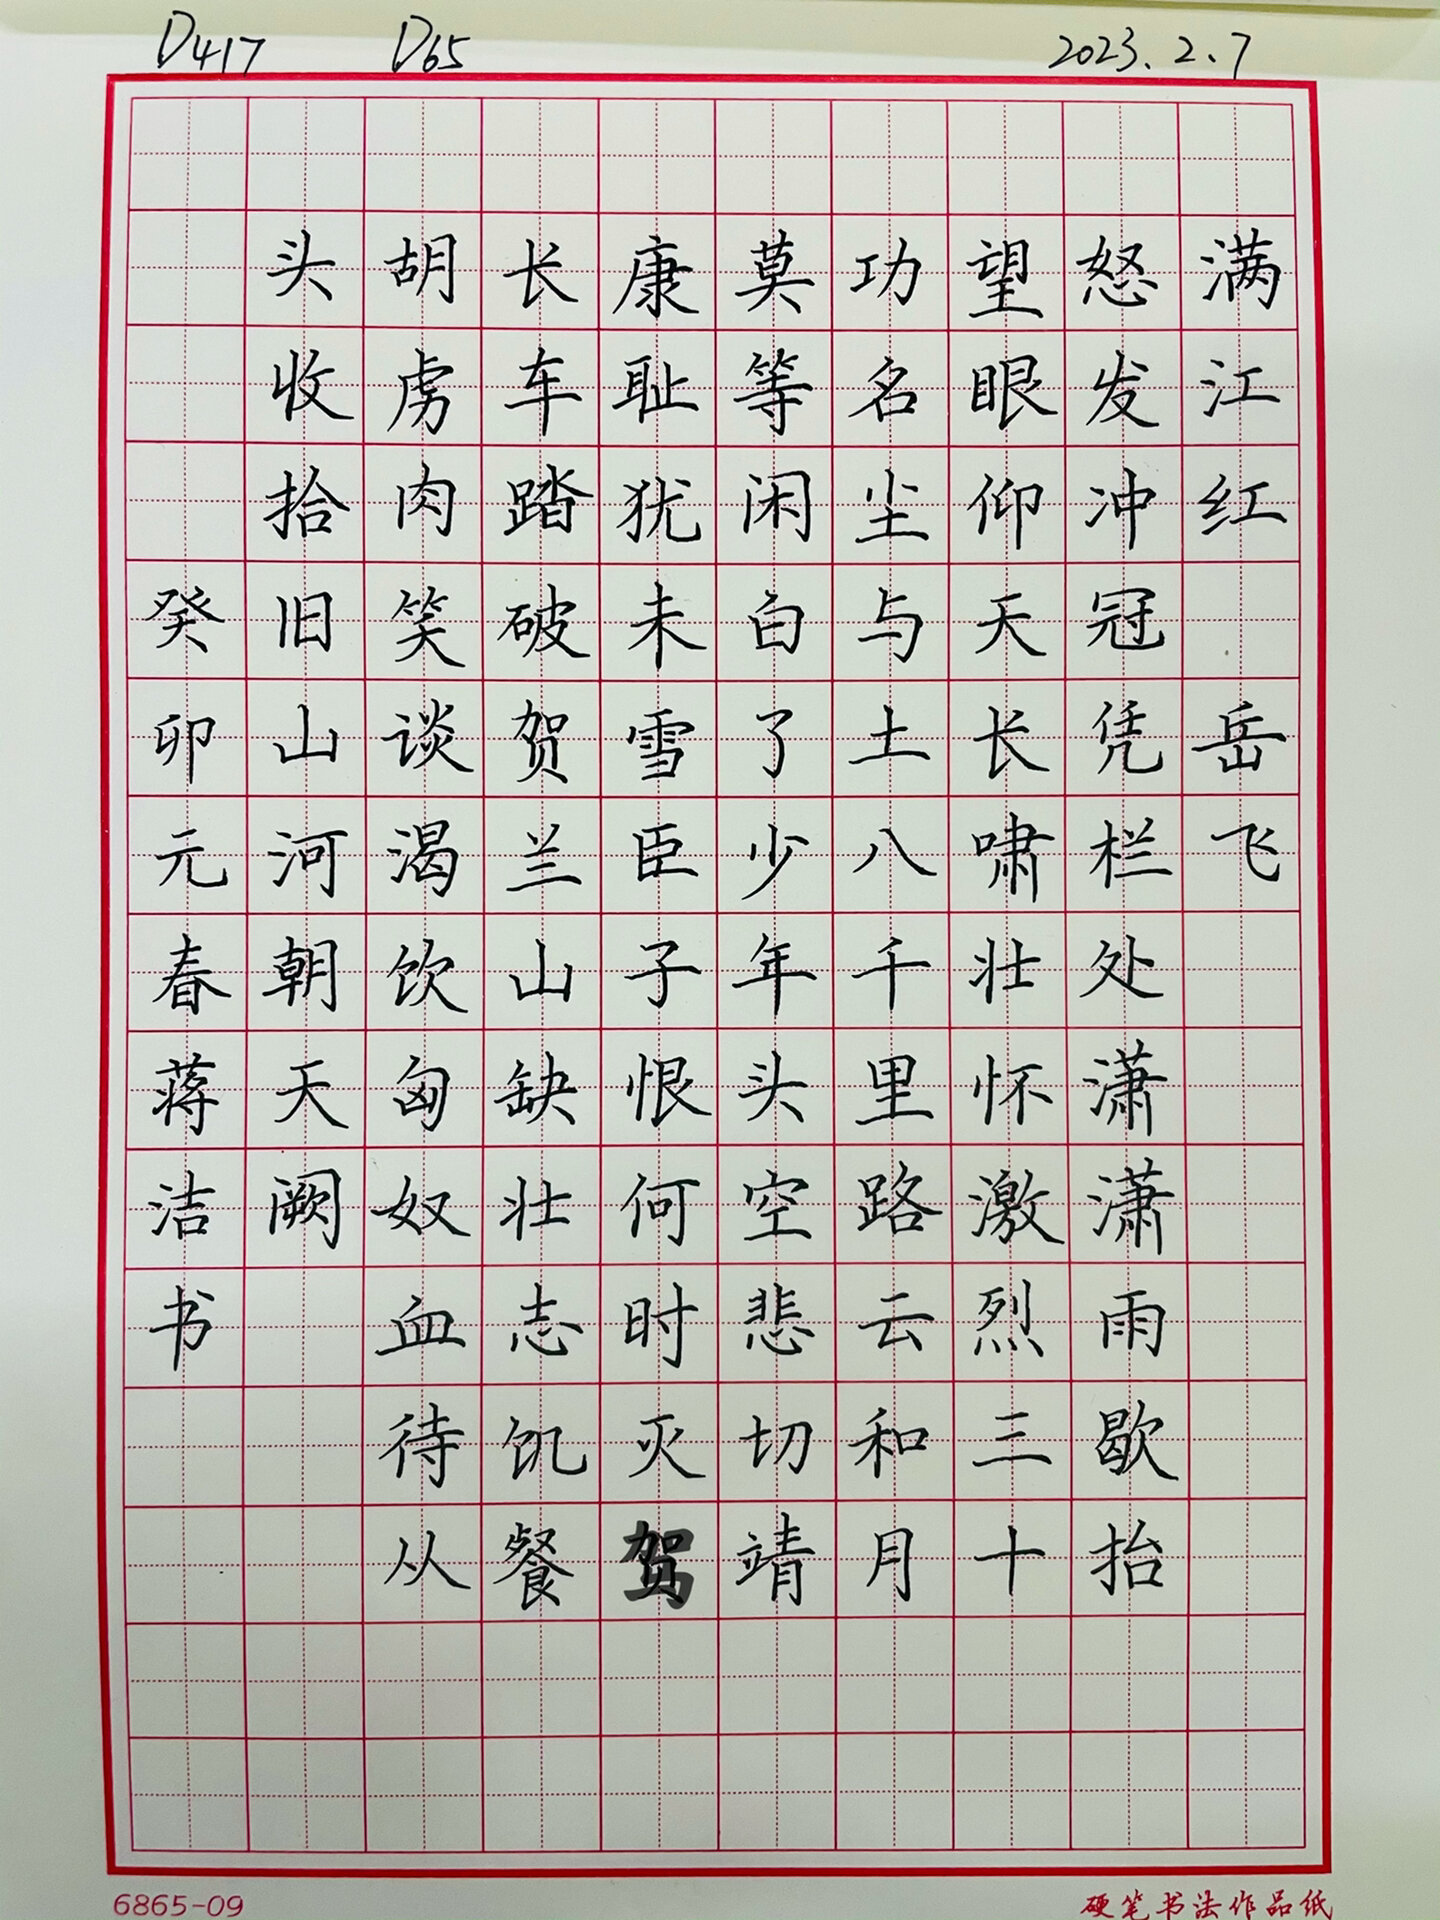 D417 D65 2023.2.7
满江红 岳飞
怒发冲冠凭栏处潇潇雨歇抬
望眼仰天长啸壮怀激烈三十
功名尘与土八千里路云和月
莫等闲白了少年头空悲切靖
康耻犹未雪臣子恨何时灭驾
长车踏破贺兰山缺壮志饥餐
胡虏肉笑谈渴饮匈奴血待从
头收拾旧山河朝天阙
癸卯元春蒋洁书
6865-09 硬笔书法作品纸